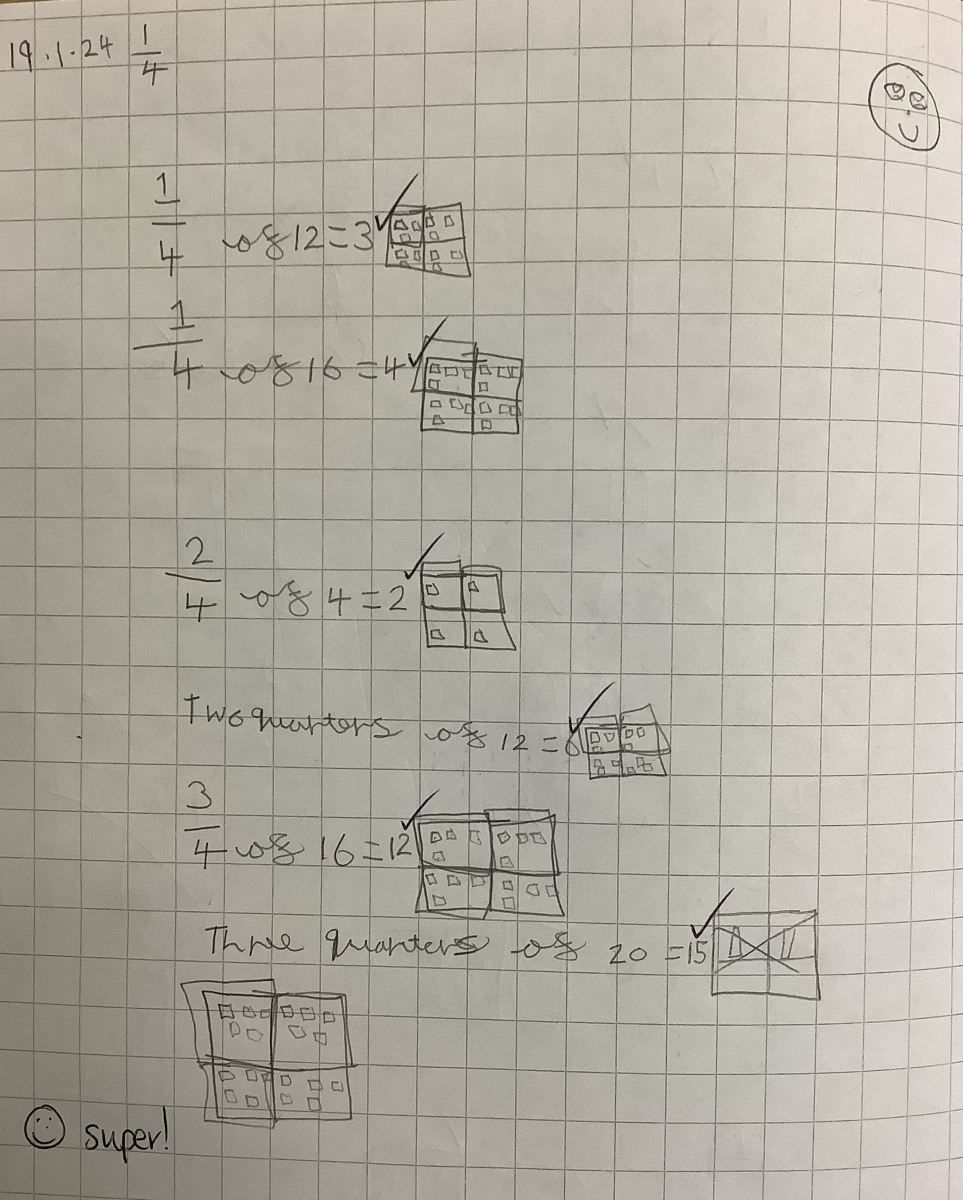 19.1.24 1/4
1/4 of 12 = 3
1/4 of 16 = 4
2/4 of 4 = 2
Two quarters of 12 = 6
3/4 of 16 = 12
Three quarters of 20 = 15
super!